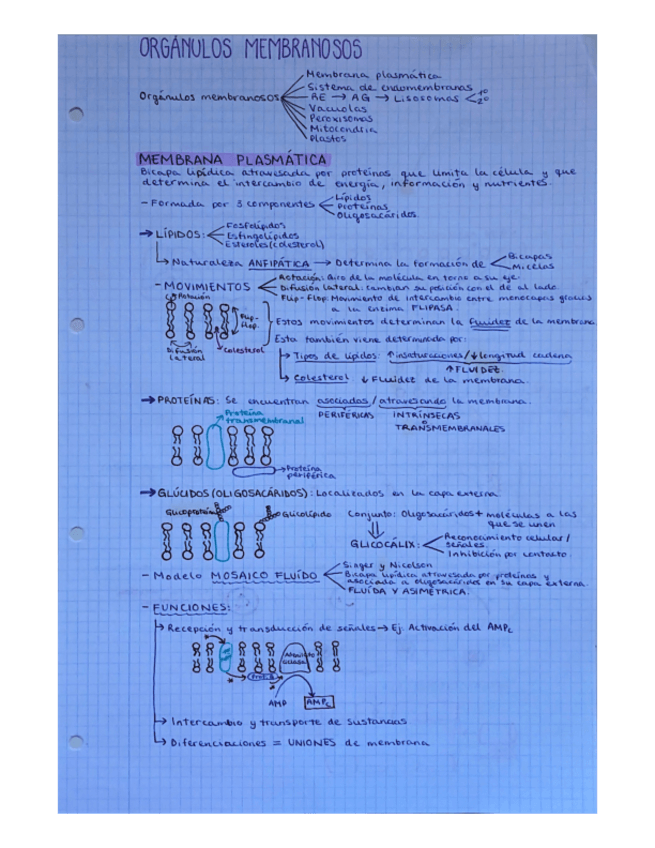 ORGÁNULOS MEMBRANOSOS
Orgánulos membranosos
Membrana plasmática
Sistema de endomembranas
RE → AG → Lisosomas < 1º 2º
Vacuolas
Peroxisomas
Mitocondria
Plastos
MEMBRANA PLASMÁTICA
Bicapa lipídica atravesada por proteínas que limita la célula y que
determina el intercambio de energía, información y nutrientes.
- Formada por 3 componentes
Lípidos
Proteínas
Oligosacáridos.
→ LÍPIDOS:
Fosfolípidos
Esfingolípidos
Esteroles (colesterol)
→ Naturaleza ANFIPÁTICA → Determina la formación de
Bicapas
Micelas
- MOVIMIENTOS
Rotación: Giro de la molécula en torno a su eje.
Difusión lateral: cambian su posición con el de al lado.
Flip-Flop: Movimiento de intercambio entre monocapas gracias
a la enzima FLIPASA.
Rotación
Flip-
flop.
Difusión
lateral
Colesterol
Estos movimientos determinan la fluidez de la membrana.
Esta también viene determinada por:
→ Tipos de lípidos: ↑insaturaciones/↓longitud cadena
↑FLUIDEZ.
→ Colesterol ↓Fluidez de la membrana.
→ PROTEÍNAS: Se encuentran asociadas/atravesando la membrana.
PERIFÉRICAS
INTRÍNSECAS
o
TRANSMEMBRANALES
Proteína
transmembranal
Proteína
periférica
→ GLÚCIDOS (OLIGOSACÁRIDOS): Localizados en la capa externa.
Glicoproteína
Glicolípido
Conjunto: Oligosacáridos + moléculas a las
que se unen
GLICOCÁLIX:
Reconocimiento celular/
señales.
Inhibición por contacto.
- Modelo MOSAICO FLUÍDO
Singer y Nicolson
Bicapa lipídica atravesada por proteínas y
asociada a oligosacáridos en su capa externa.
FLUÍDA Y ASIMÉTRICA.
- FUNCIONES:
→ Recepción y transducción de señales → Ej. Activación del AMPc
Adenilato
ciclasa
Prot. G
AMP
AMPc
→ Intercambio y transporte de sustancias
→ Diferenciaciones = UNIONES de membrana